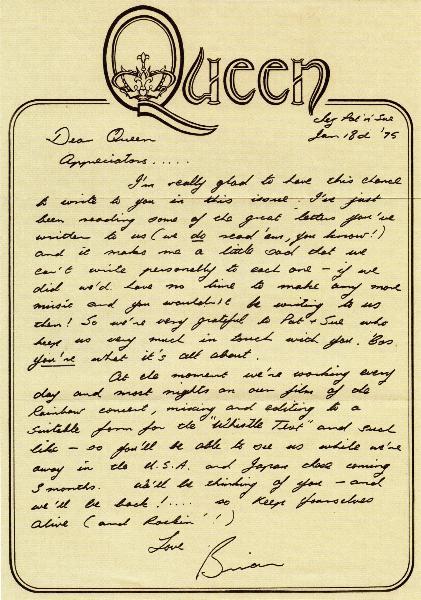 Queen
c/o Pat 'n' Sue
Jan 18th '75
Dear Queen
Appreciators.....
I'm really glad to have this chance
to write to you in this issue. I've just
been reading some of the great letters you've
written to us (we do read 'em, you know!)
and it makes me a little sad that we
can't write personally to each one – if we
did we'd have no time to make any more
music and you wouldn't be writing to us
then! So we're very grateful to Pat + Sue who
keep us very much in touch with you. Cos
you're what it's all about.
At the moment we're working every
day and most nights on our film of the
Rainbow concert, mixing and editing to a
suitable form for the "Whistle Test" and such
like – so you'll be able to see us while we're
away in the U.S.A. and Japan these coming
3 months. We'll be thinking of you – and
we'll be back!.... so keep yourselves
alive (and Rockin'!)
Love
Brian